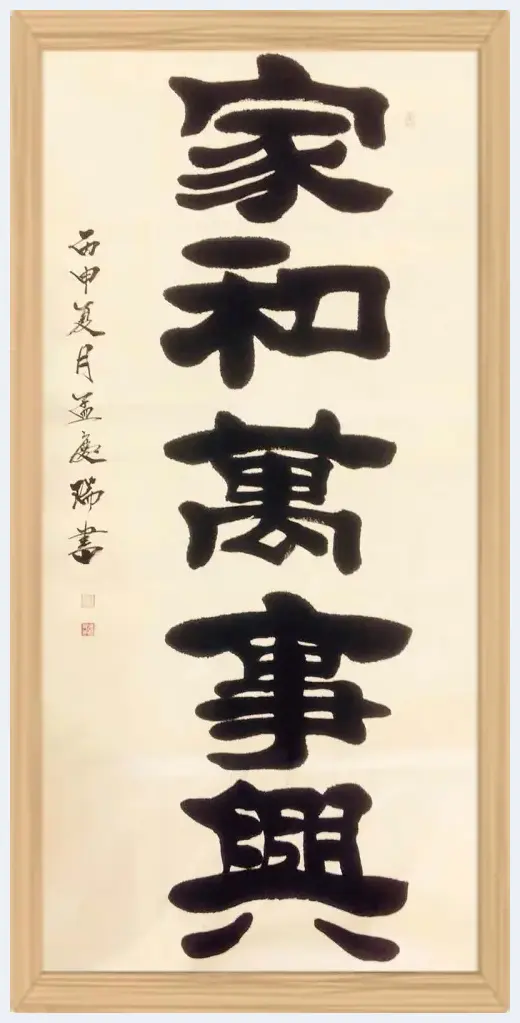 家和萬事興
丙申夏月孟慶瑞書